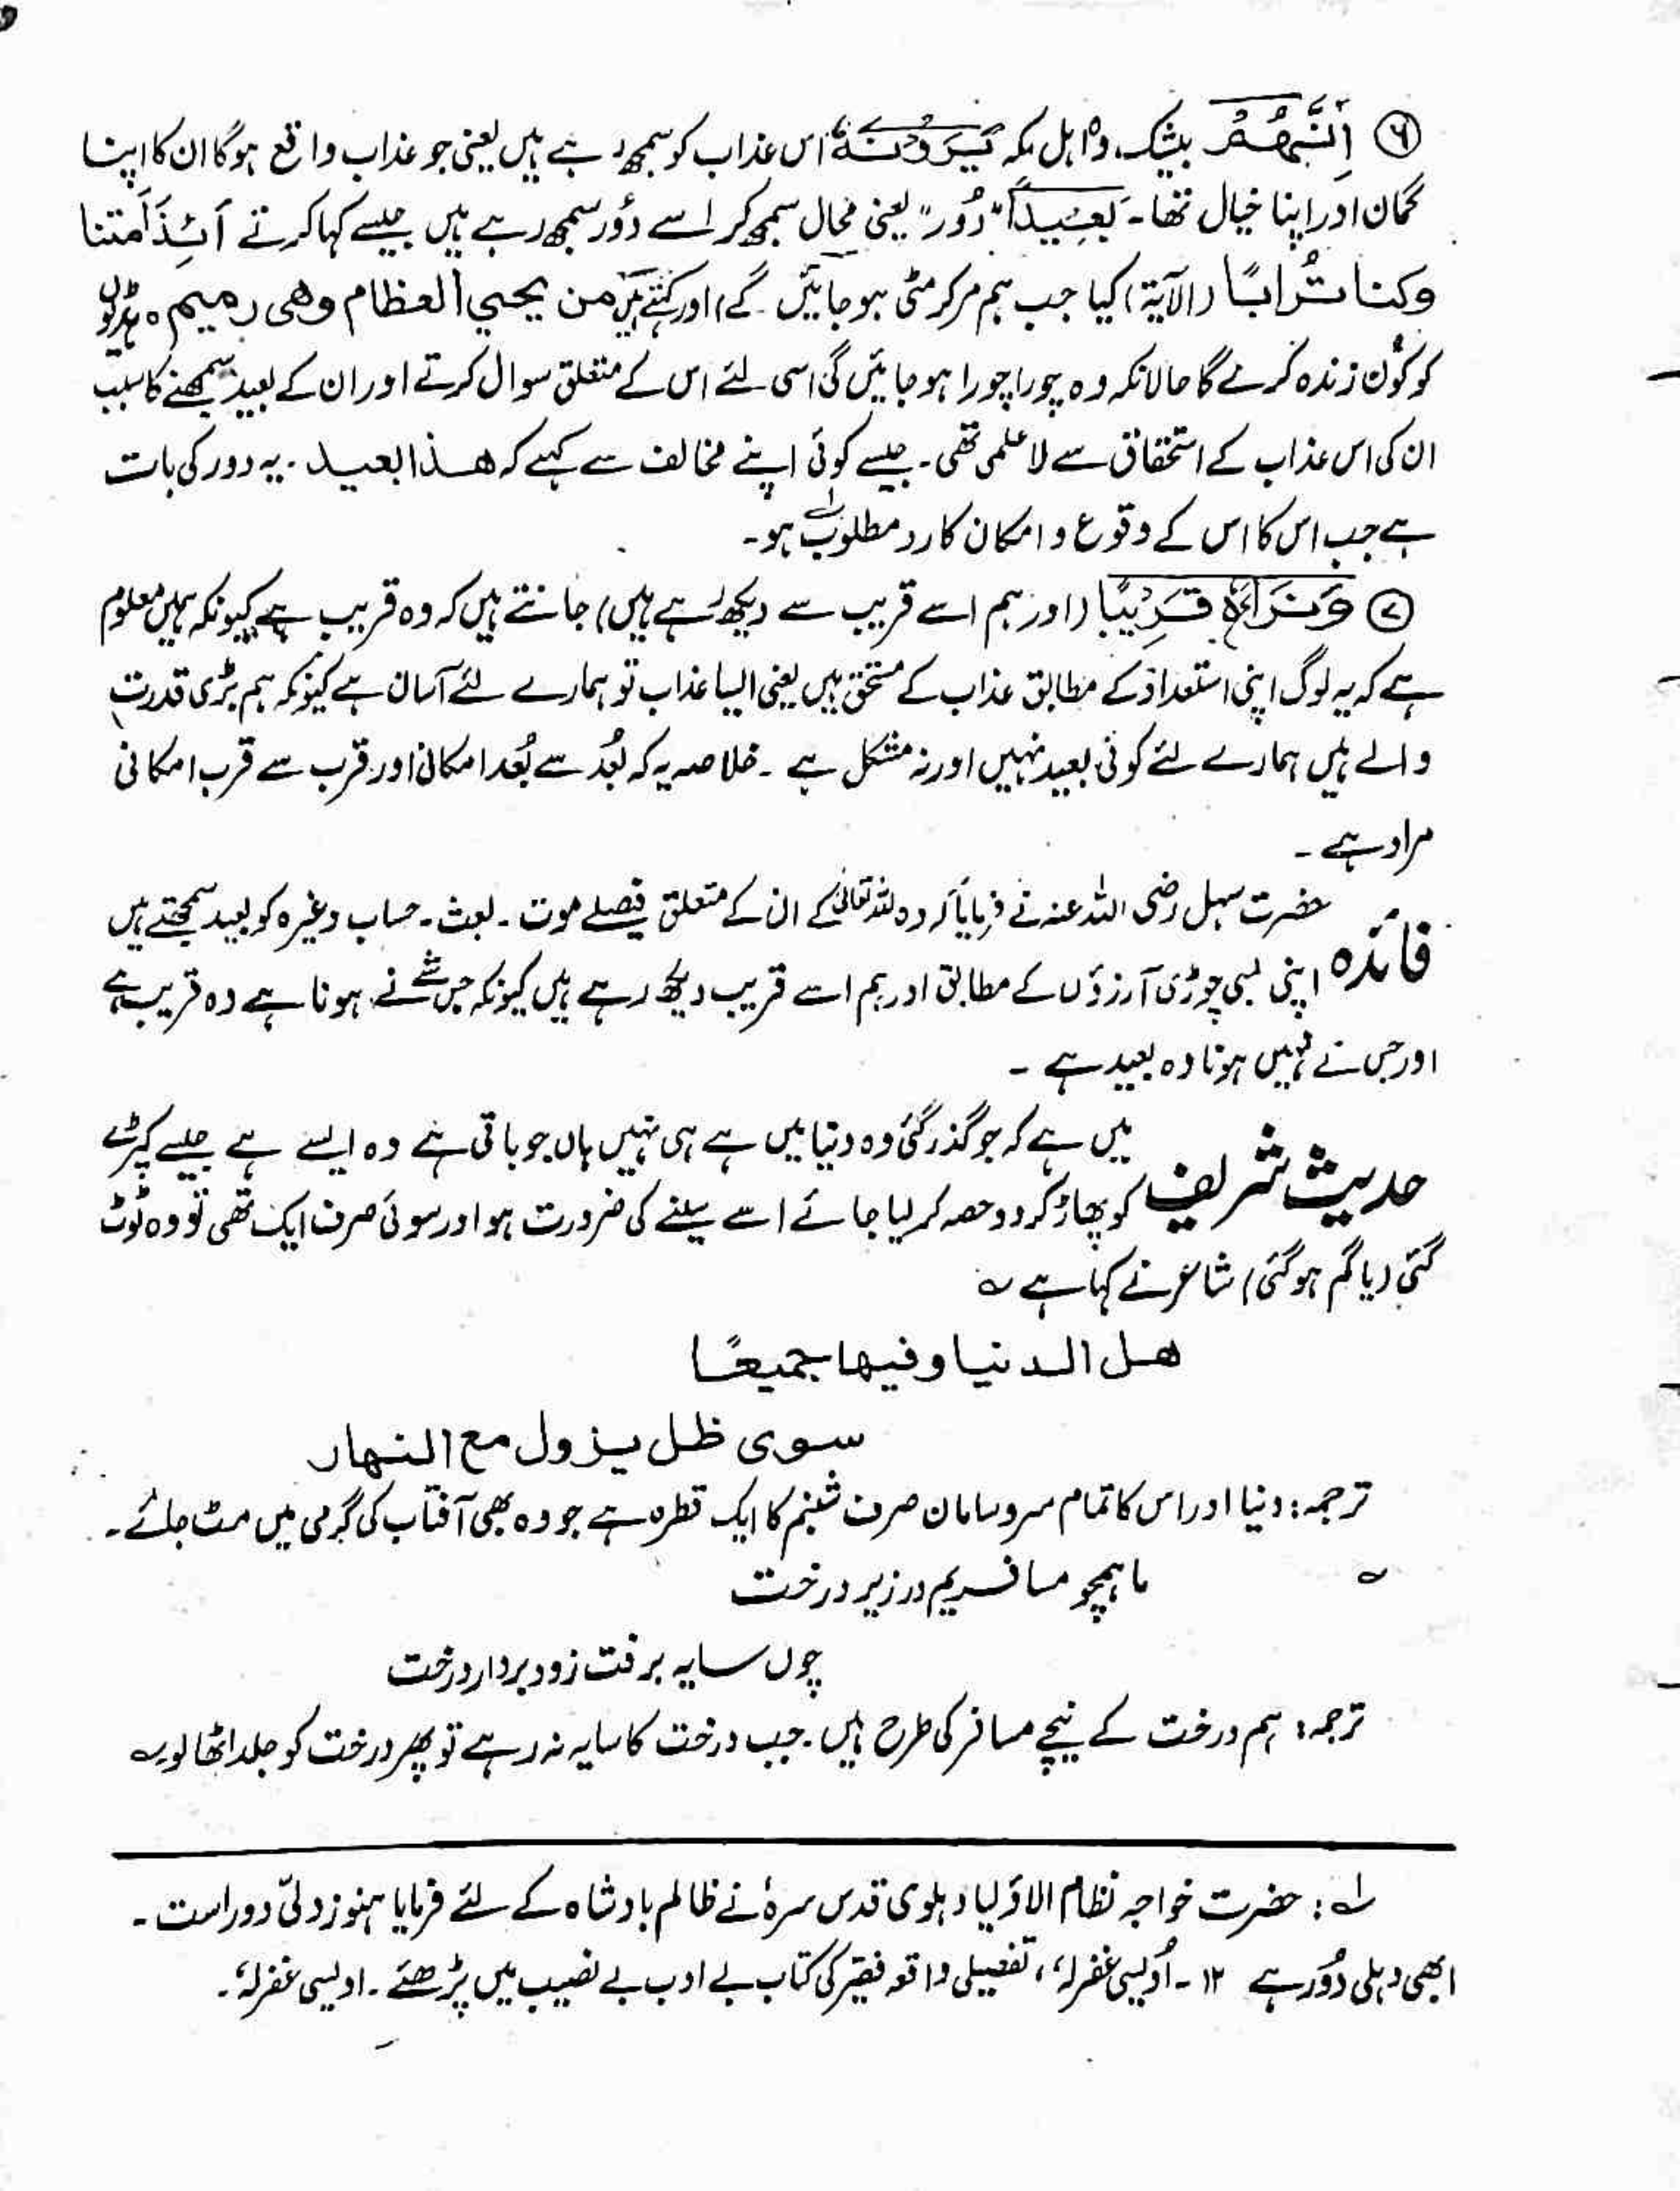 ⑥ اِنَّهُمْ بیشک وہ اہل مکہ یَرَوْنَهٗ اس عذاب کو سمجھ رہے ہیں یعنی جو عذاب واقع ہوگا ان کا اپنا
گمان اور اپنا خیال تھا۔ بَعِیْدًا "دُور" یعنی محال سمجھ کر اسے دُور سمجھ رہے ہیں جیسے کہا کرتے أَئِذَا مِتْنَا
وکنا تُرَابًا (الآیۃ) کیا جب ہم مرکر مٹی ہو جائیں گے) اور کہتے ہیں من یحیي العظام وھی رمیم ہ ہڈیوں
کو کون زندہ کرے گا حالانکہ وہ چورا چورا ہو جائیں گی اسی لئے اس کے متعلق سوال کرتے اور ان کے بعید سمجھنے کا سبب
ان کی اس عذاب کے استحقاق سے لا علمی تھی۔ جیسے کوئی اپنے مخالف سے کہے کہ ھذا بعید۔ یہ دور کی بات
ہے جب اس کا اس کے وقوع و امکان کا رد مطلوب ہو۔ لے
⑦ وَنَرَاهُ قَرِيْبًا (اور ہم اسے قریب سے دیکھ رہے ہیں) جانتے ہیں کہ وہ قریب ہے کیونکہ ہمیں معلوم
ہے کہ یہ لوگ اپنی استعداد کے مطابق عذاب کے مستحق ہیں یعنی ایسا عذاب تو ہمارے لئے آسان ہے کیونکہ ہم بڑی قدرت
والے ہیں ہمارے لئے کوئی بعید نہیں اور نہ مشکل ہے۔ خلاصہ یہ کہ بُعد سے بُعد امکانی اور قرب سے قرب امکانی
مراد ہے۔
حضرت سہل رضی اللہ عنہ نے فرمایا کہ وہ اللہ تعالیٰ کے ان کے متعلق فیصلے موت۔ بعث۔ حساب وغیرہ کو بعید سمجھتے ہیں
فائدہ اپنی لمبی چوڑی آرزوؤں کے مطابق اور ہم اسے قریب دیکھ رہے ہیں کیونکہ جس شے نے ہونا ہے وہ قریب ہے
اور جس نے نہیں ہونا وہ بعید ہے۔
میں ہے کہ جو گذر گئی وہ دنیا میں ہے ہی نہیں ہاں جو باقی ہے وہ ایسے ہے جیسے کپڑے
حدیث شریف کو پھاڑ کر دو حصہ کر لیا جائے اسے سینے کی ضرورت ہو اور سوئی صرف ایک تھی تو وہ ٹوٹ
گئی (یا گم ہوگئی) شاعر نے کہا ہے ؎
ھل الدنیا وفیھا جمیعًا
سوی ظل یزول مع النھار
ترجمہ: دنیا اور اس کا تمام سروسامان صرف شبنم کا ایک قطرہ ہے جو وہ بھی آفتاب کی گرمی میں مٹ جائے۔
؎ ما ہمچو مسافریم در زیر درخت
چوں سایہ برفت زود بردار درخت
ترجمہ: ہم درخت کے نیچے مسافر کی طرح ہیں۔ جب درخت کا سایہ نہ رہے تو پھر درخت کو جلد اٹھا لو ؎
لے: حضرت خواجہ نظام الاولیا دہلوی قدس سرہٗ نے ظالم بادشاہ کے لئے فرمایا ہنوز دلّی دور است۔
ابھی دہلی دُور ہے ۱۲۔ اُویسی غفرلہٗ، تفصیلی واقعہ فقیر کی کتاب بے ادب بے نصیب میں پڑھئے۔ اویسی غفرلہٗ۔